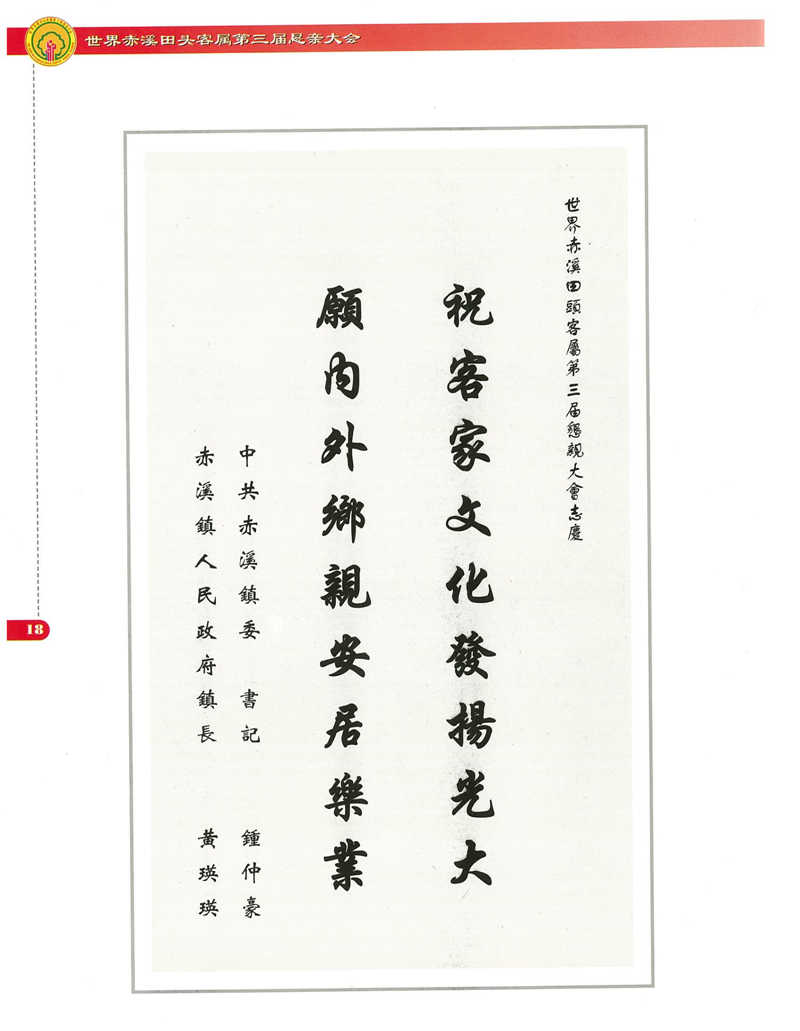 世界赤溪田头客属第三届恳亲大会
世界赤溪田頭客屬第三届懇親大會志慶
祝客家文化發揚光大
願内外鄉親安居樂業
中共赤溪鎮委 書記 鍾仲豪
赤溪鎮人民政府鎮長 黃瑛瑛
18